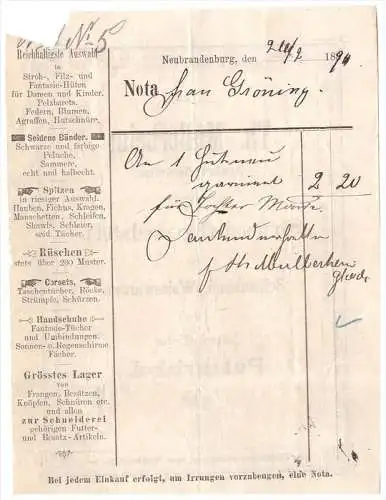 No 5
Reichhaltigste Auswahl
in
Stroh-, Filz- und
Fantasie-Hüten
für Damen und Kinder.
Pelzbarets.
Federn, Blumen,
Agraffen, Hutschnüre.
Seidene Bänder.
Schwarze und farbige
Peluche,
Sammete,
echt und halbecht.
Spitzen
in riesiger Auswahl.
Hauben, Fichus, Kragen,
Manschetten, Schleifen,
Shawls, Schleier,
seid. Tücher.
Rüschen
stets über 200 Muster.
Corsets,
Taschentücher, Röcke,
Strümpfe, Schürzen.
Handschuhe
Fantasie-Tücher
und Umbindungen.
Sonnen- u. Regenschirme
Fächer.
Grösstes Lager
von
Frangen, Besätzen,
Knöpfen, Schnüren etc.
und allen
zur Schneiderei
gehörigen Futter-
und Besatz-Artikeln.
Neubrandenburg, den 189
Nota Frau Gröning.
An 1 Hut neu
garniert 2 20
für
Dankend erhalten
Bei jedem Einkauf erfolgt, um Irrungen vorzubeugen, eine Nota.